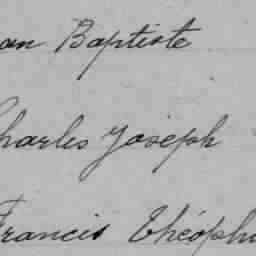 an Baptiste
Charles Joseph
Francis Théoph